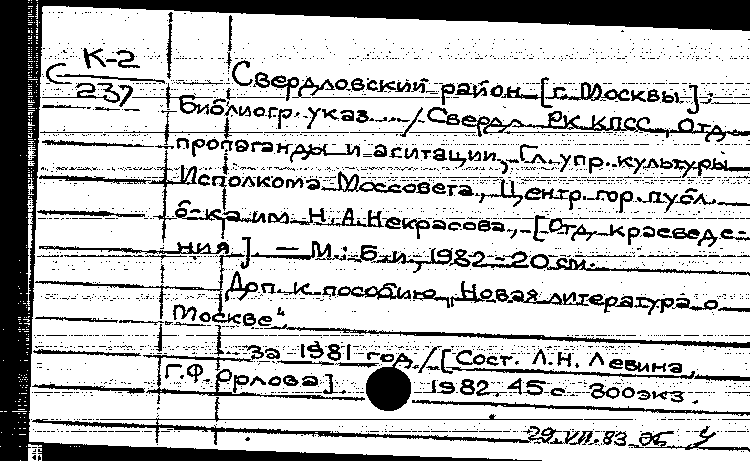 К-2
С
237
Свердловский район [г. Москвы]:
Библиогр. указ... / Свердл. РК КПСС, Отд.
пропаганды и агитации, Гл. упр. культуры
Исполкома Моссовета, Центр. гор. публ.
б-ка им. Н.А.Некрасова, [Отд. краеведе-
ния]. — М.: Б.и., 1982 - 20 см.
Доп. к пособию „Новая литература о
Москве“.
за 1981 год / [Сост. Л.Н. Левина,
Г.Ф. Орлова]. 1982. 45 с. 300 экз.
29.VII.83